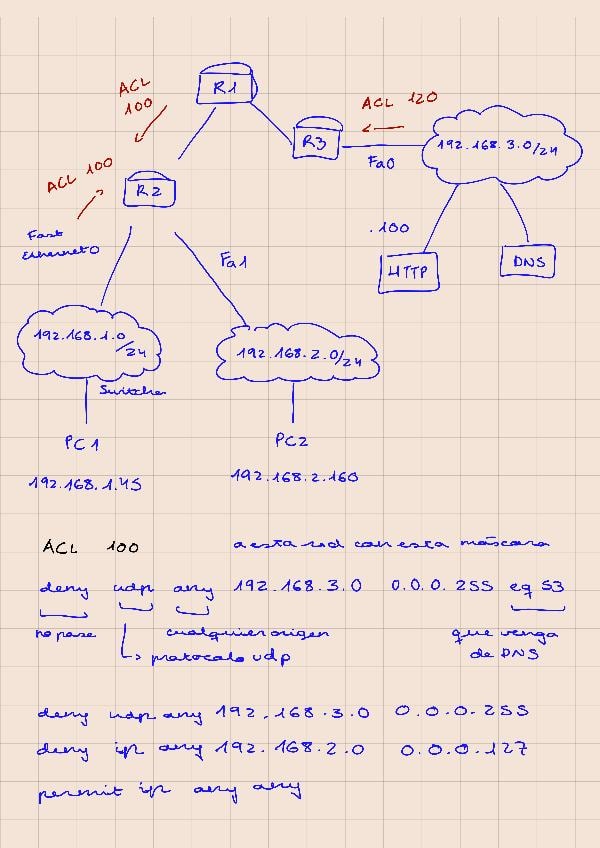 R1
ACL
100
ACL 120
R3
192.168.3.0/24
Fa0
ACL 100
R2
Fast
Ethernet0
Fa1
.100
HTTP
DNS
192.168.1.0
/24
192.168.2.0/24
Switches
PC1
PC2
192.168.1.45
192.168.2.160
ACL 100
a esta red con esta máscara
deny udp any 192.168.3.0 0.0.0.255 eq 53
no pase
cualquier origen
que venga
protocolo udp
de DNS
deny udp any 192.168.3.0 0.0.0.255
deny ip any 192.168.2.0 0.0.0.127
permit ip any any